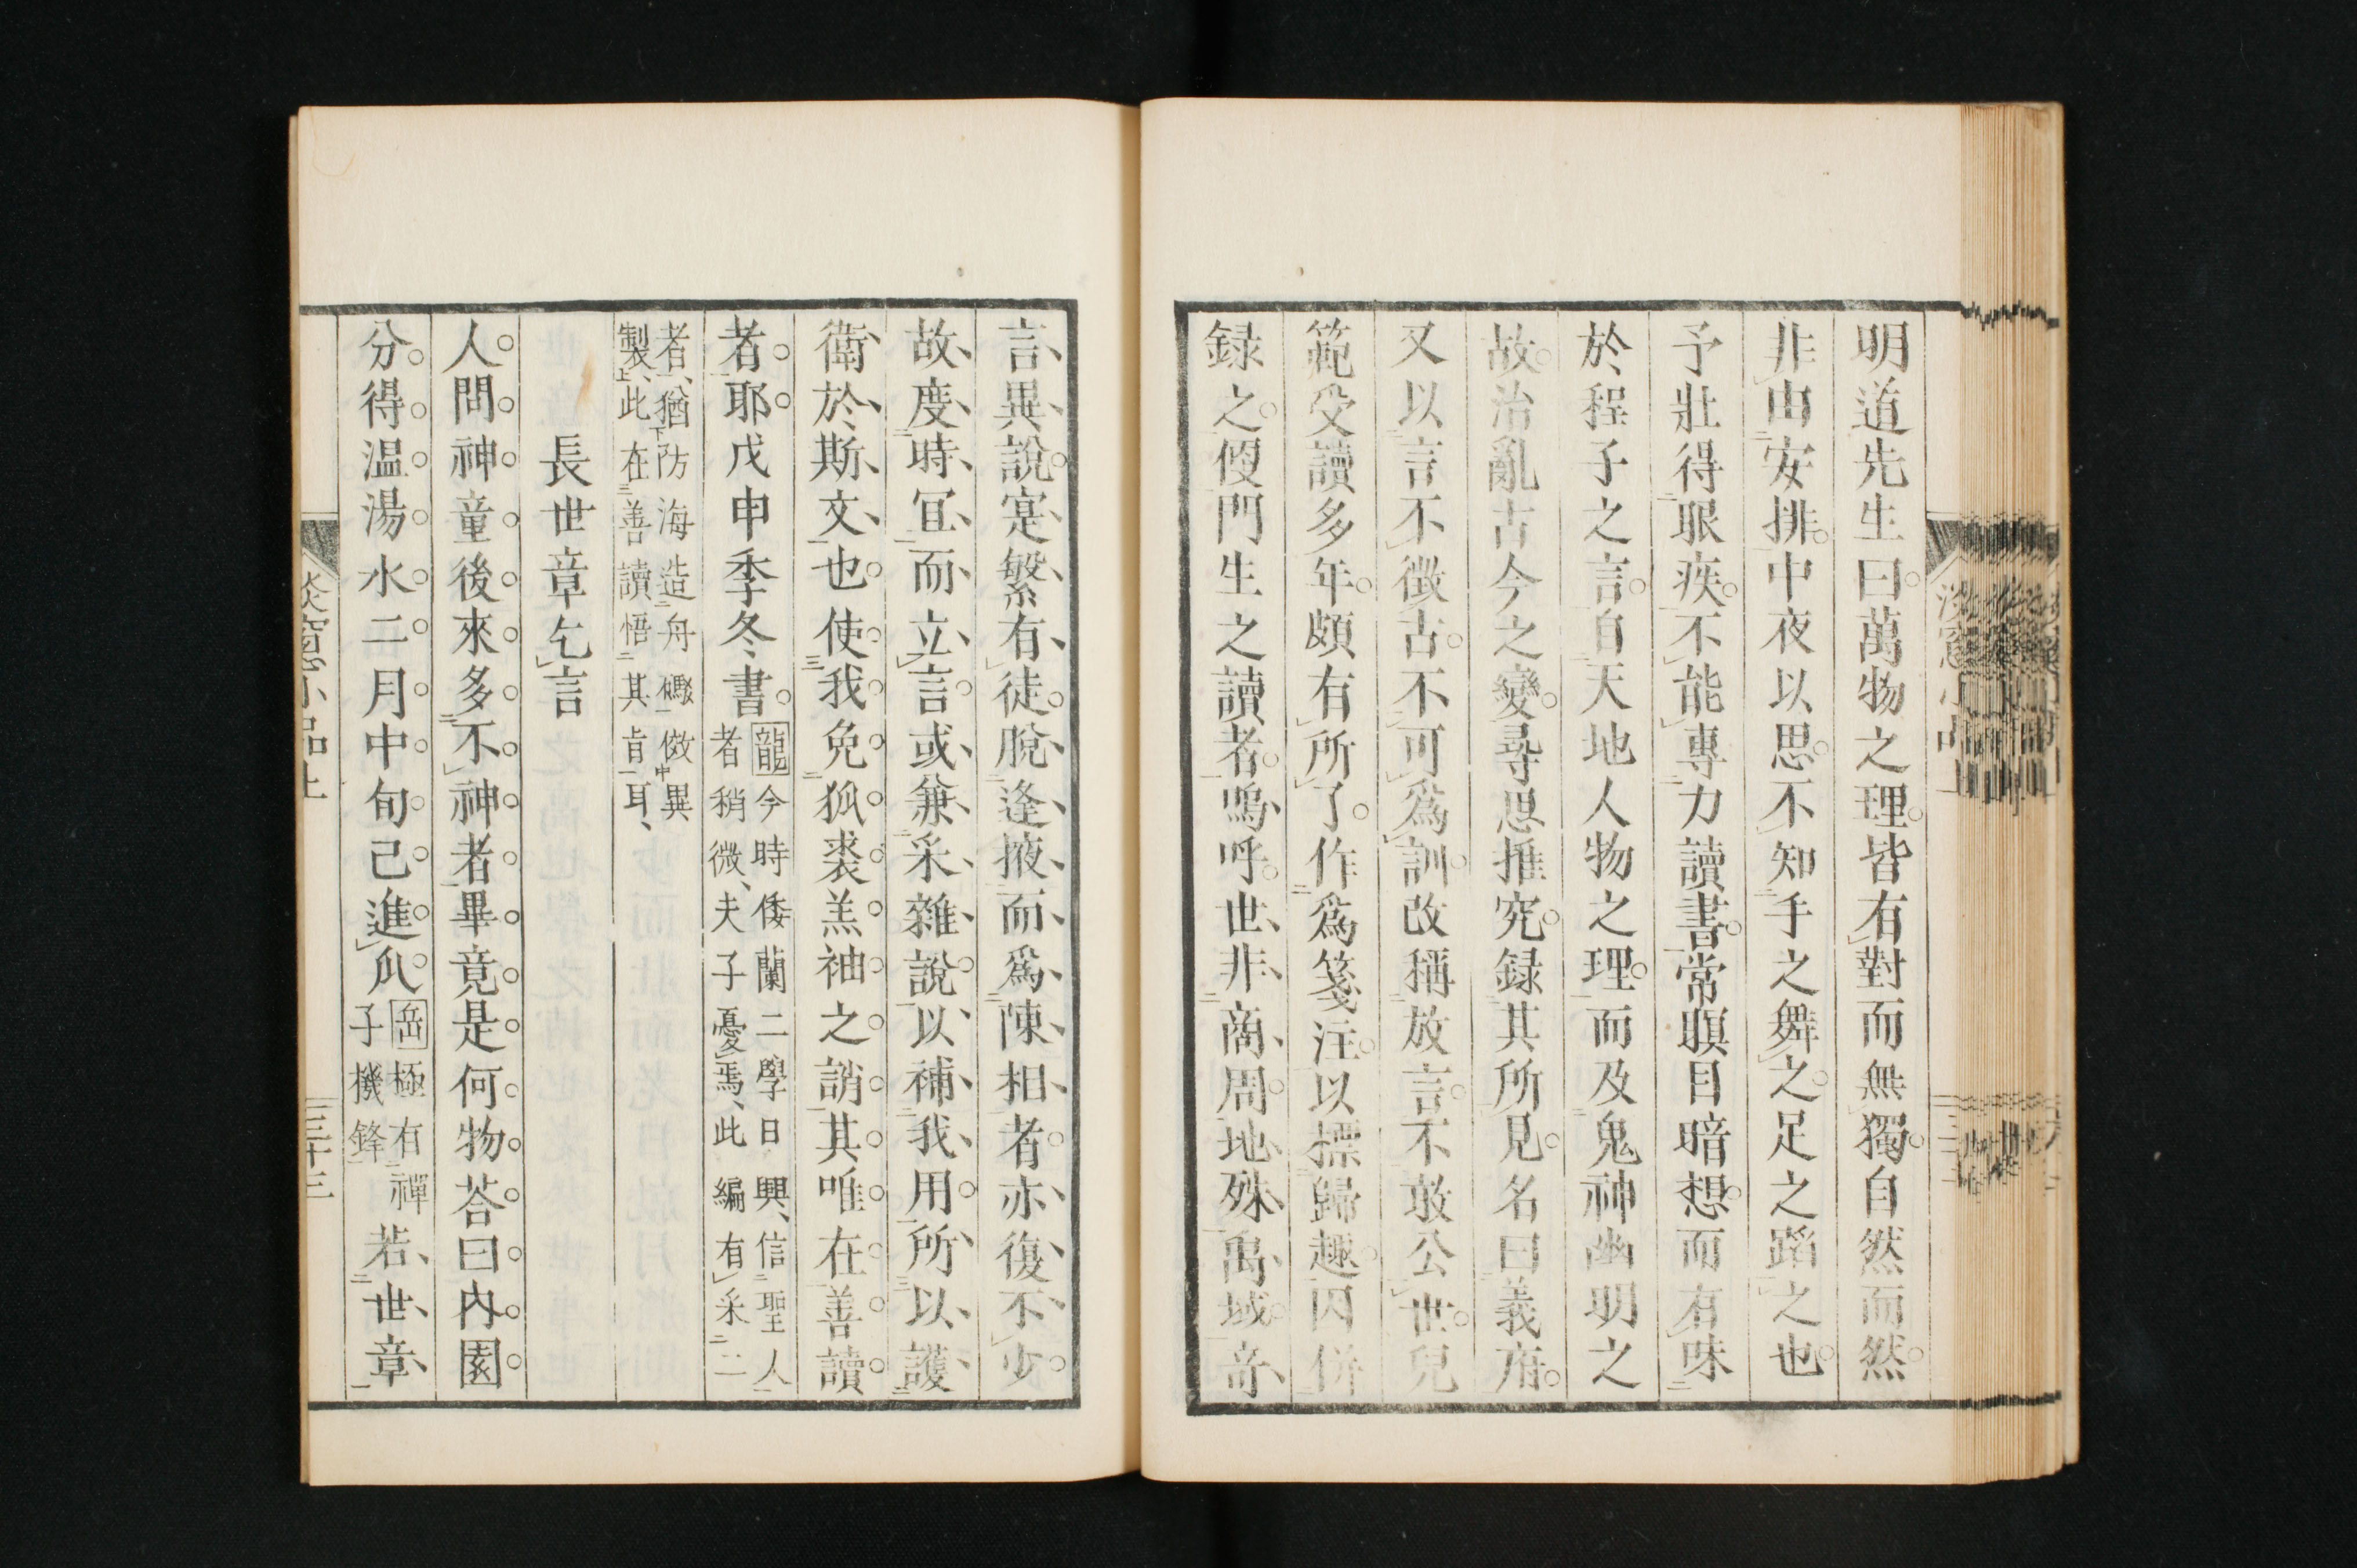 明道先生曰萬物之理皆有對而無獨自然而然
非由安排中夜以思不知手之舞之足之蹈之也
予壯得眼疾不能專力讀書常瞑目暗想而有味
於程子之言自天地人物之理而及鬼神幽明之
故治亂古今之變尋思推究録其所見名曰義府
又以言不徵古不可爲訓改稱放言不敢公世兒
範受讀多年頗有所了作爲箋注以標歸趣因併
録之便門生之讀者嗚呼世非商周地殊禹域奇
言異說寔繁有徒脫逢掖而爲陳相者亦復不少
故度時宜而立言或兼采雜說以補我用所以護
衛於斯文也使我免狐裘羔袖之誚其唯在善讀
者耶戊申季冬書龍今時倭蘭二學日興信聖人
者稍微夫子憂焉此編有采二
者猶防海造舟礮倣異
製此在善讀悟其旨耳
長世章乞言
人問神童後來多不神者畢竟是何物荅曰內園
分得温湯水二月中旬己進瓜岳極有禪
子機鋒若世章
淡窻小品上
三十三